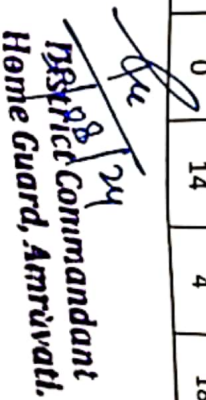 0 14 4 18
08/24
District Commandant
Home Guard, Amravati.